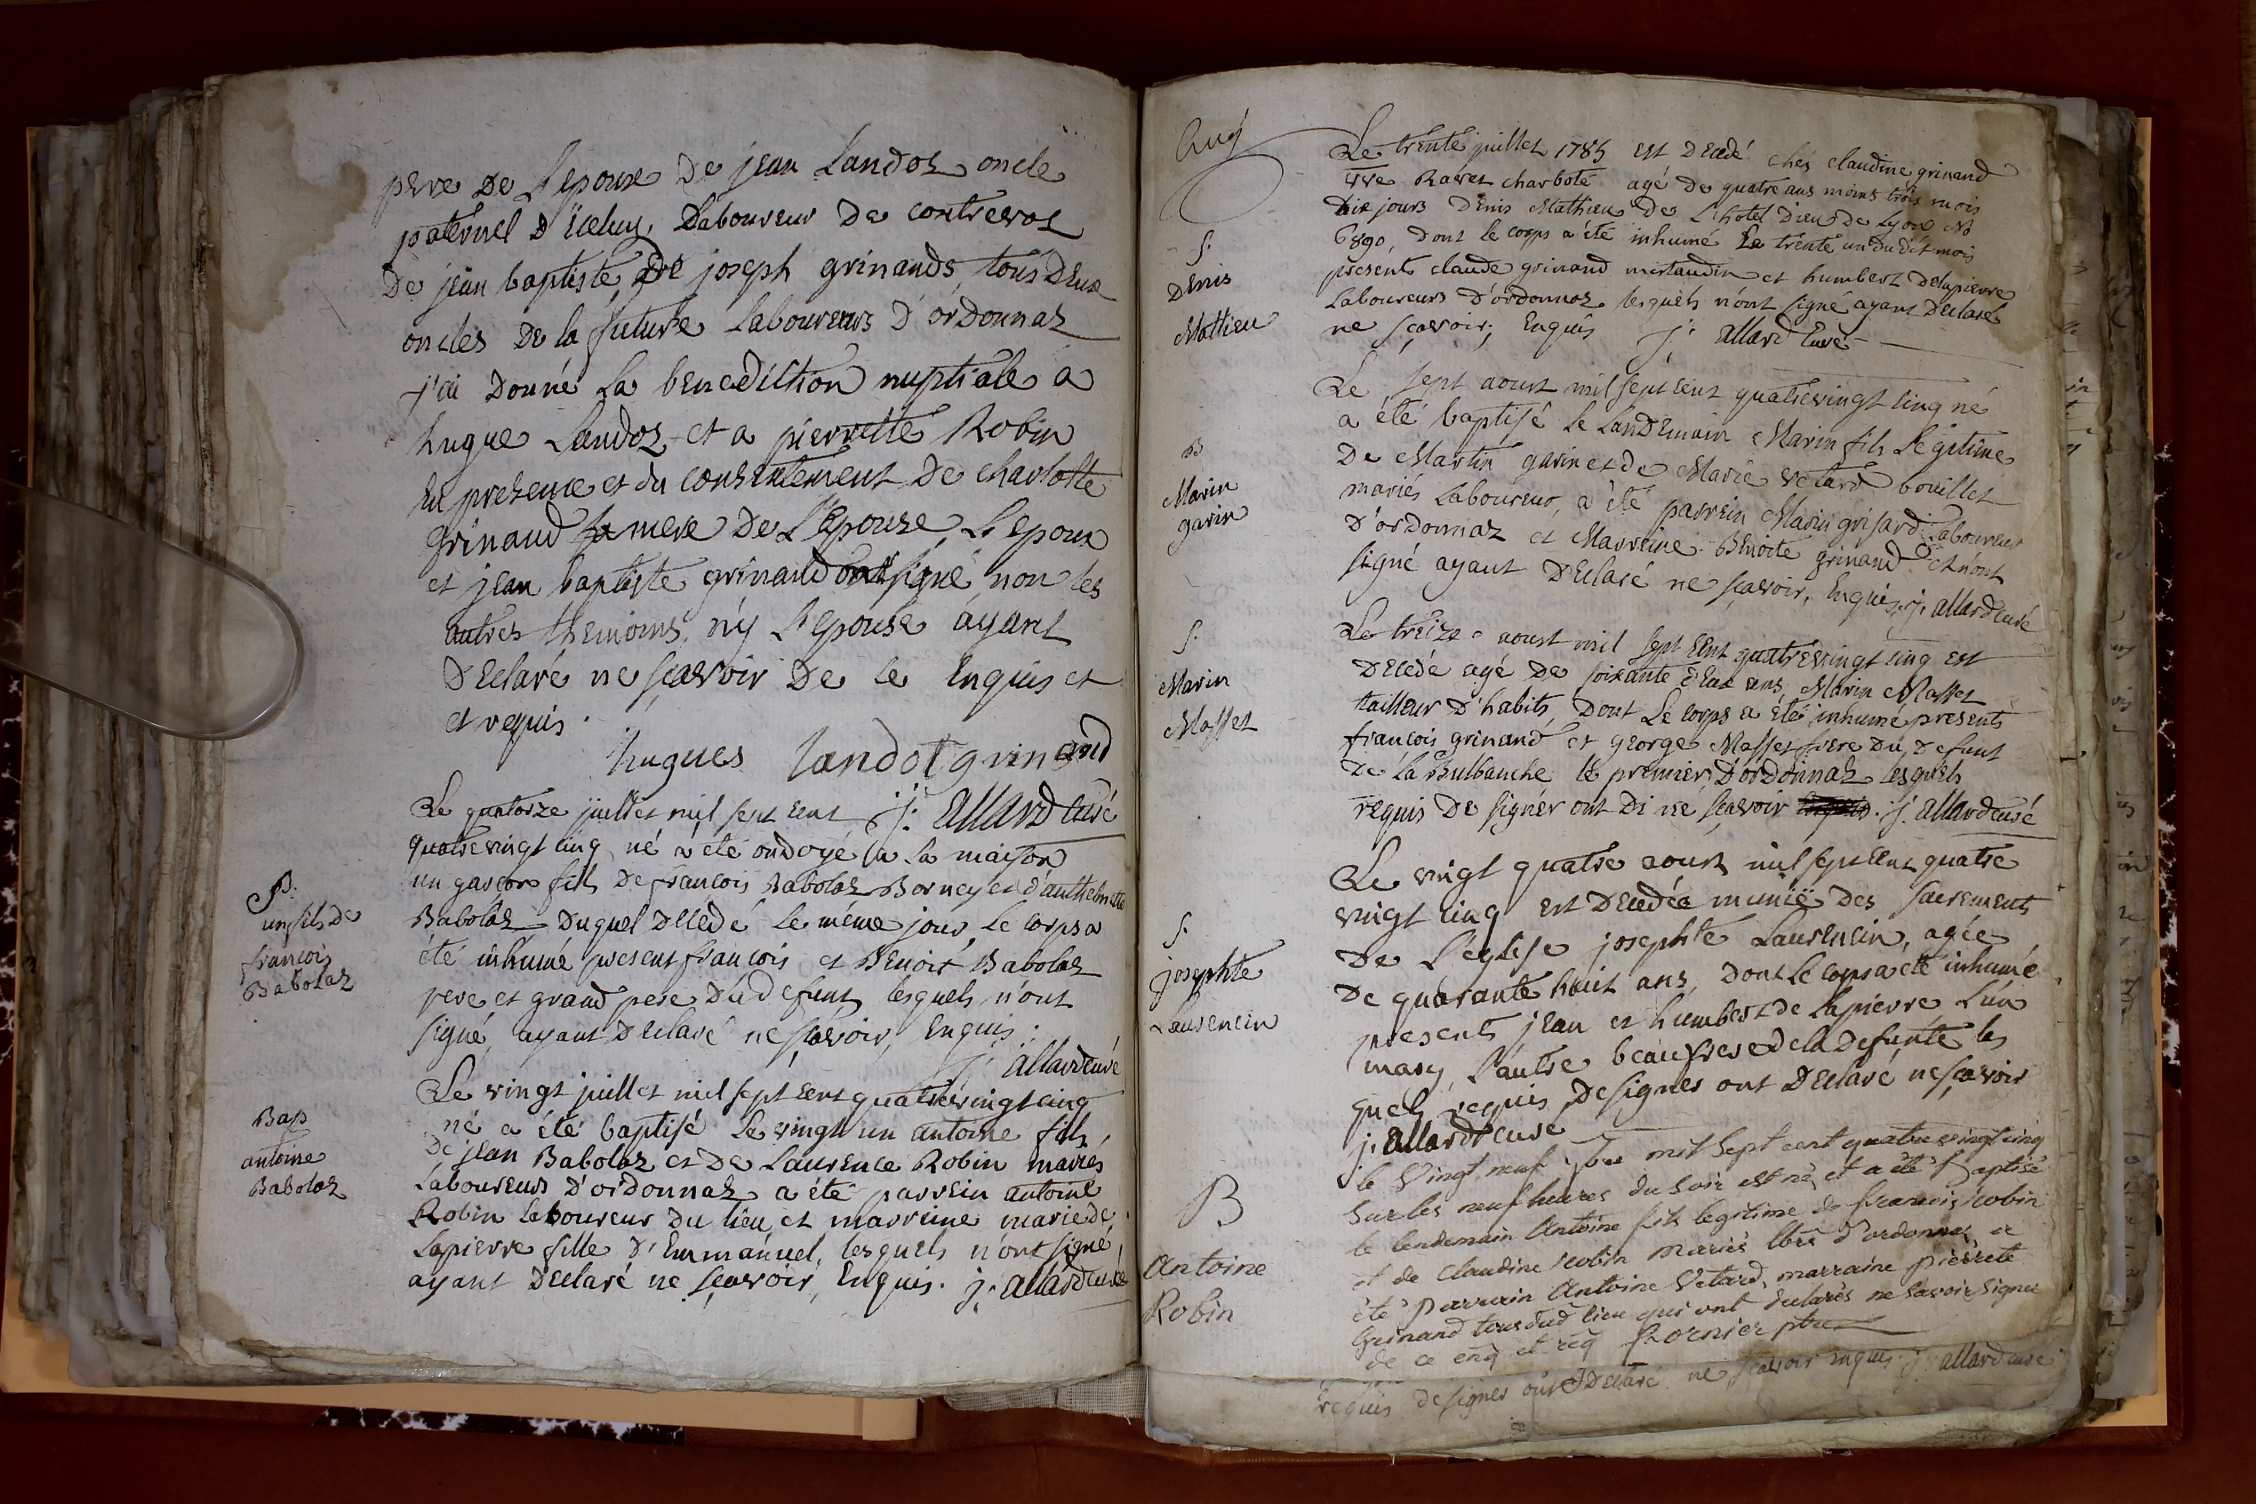 pere de L'epoux de jean Landoz oncle
paternel d'iceluy, Laboureur de contrevoz
de jean baptiste, de joseph grinands tous deux
oncles de la future Laboureurs d'ordonnaz
j'ai donné La benediction nuptiale a
hugue Landoz et a pierrette Robin
En presence et du consentement de charlotte
grinand sa mere de L'epouse, L'epoux
et jean baptiste grinand ont signé non les
autres themoins, n'y L'epouse ayant
declaré ne sçavoir de ce Enquis et
et requis.
hugues landot grinand
j: allard curé
Le quatorze juillet mil sept cent
quatrevingt cinq né a été ondoyé a La maison
un garçon fils de francois Babolaz Borney et d'anthelmette
Babolaz duquel decedé le même jour, Le corps a
été inhumé present francois et Benoit Babolaz
pere et grand pere dud defunt lesquels n'ont
signé, ayant declaré ne sçavoir, Enquis.
j: allard curé
un fils de
francois
Babolaz
Le vingt juillet mil sept cent quatrevingt cinq
né a été baptisé Le vingt un antoine fils
de jean Babolaz et de Laurence Robin mariés
Laboureurs d'ordonnaz a été parrein antoine
Robin laboureur du lieu et marreine marie de
Lapierre fille d'Emmanuel, lesquels n'ont signé,
ayant declaré ne sçavoir, Enquis. j: allard curé
Bap
antoine
Babolaz
Aug
Le trente juillet 1785 est decedé chés claudine grinand
vve Ravet charbote agé de quatre ans moins trois mois
dix jours Denis Mathieu de L'hotel Dieu de Lyon No
6890, dont le corps a été inhumé Le trente un dudit mois
presents claude grinand mirlandin et humbert Delapierre
Laboureurs d'ordonnaz lesquels n'ont signé ayant declaré
ne sçavoir; Enquis j: allard Curé
S.
Denis
Mathieu
Le sept aoust mil sept cent quatrevingt cinq né
a été baptisé le Landemain Marin fils Legitime
De Martin garin et de Marie vetard bouillet
mariés Laboureur, a été parrein Marin grisard Laboureur
d'ordonnaz et Marreine Benoite grinand et n'ont
signé ayant declaré ne sçavoir, Enquis. j. allard curé
B
Marin
garin
Le treize aoust mil sept cent quatrevingt cinq est
decedé agé de soixante deux ans, Marin Masset
tailleur d'habits, dont Le corps a été inhumé presents
françois grinand et george Masset frere du defunt
de la Bulbanche le premier d'ordonnaz lesquels
requis de signer ont di ne sçavoir. j. allard curé
S.
Marin
Masset
Le vingt quatre aoust mil sept cent quatre
vingt cinq est decedée munië des sacrements
de L'eglise josephte Laurencin, agée
de quarante huit ans, dont le corps a été inhumé
presents jean et humbert de Lapierre L'un
mary L'autre beaufrere de la defunte les
quels requis de signer ont declaré ne sçavoir
j. allard curé
S.
josephte
Laurencin
le vingt neuf 7bre mil sept cent quatre vingt cinq
sur les neuf heures du soir est né, et a été Baptisé
le lendemain Antoine fils legitime de francois Robin
et de Claudine Robin mariés lbrs d'ordonnaz, a
été parrain Antoine Vetard, marraine pierrete
Grinand tous dud lieu qui ont declarés ne savoir signer
de ce enq et req fornier ptre
B
Antoine
Robin
requis de signer ont declaré ne sçavoir enquis. j. allard curé